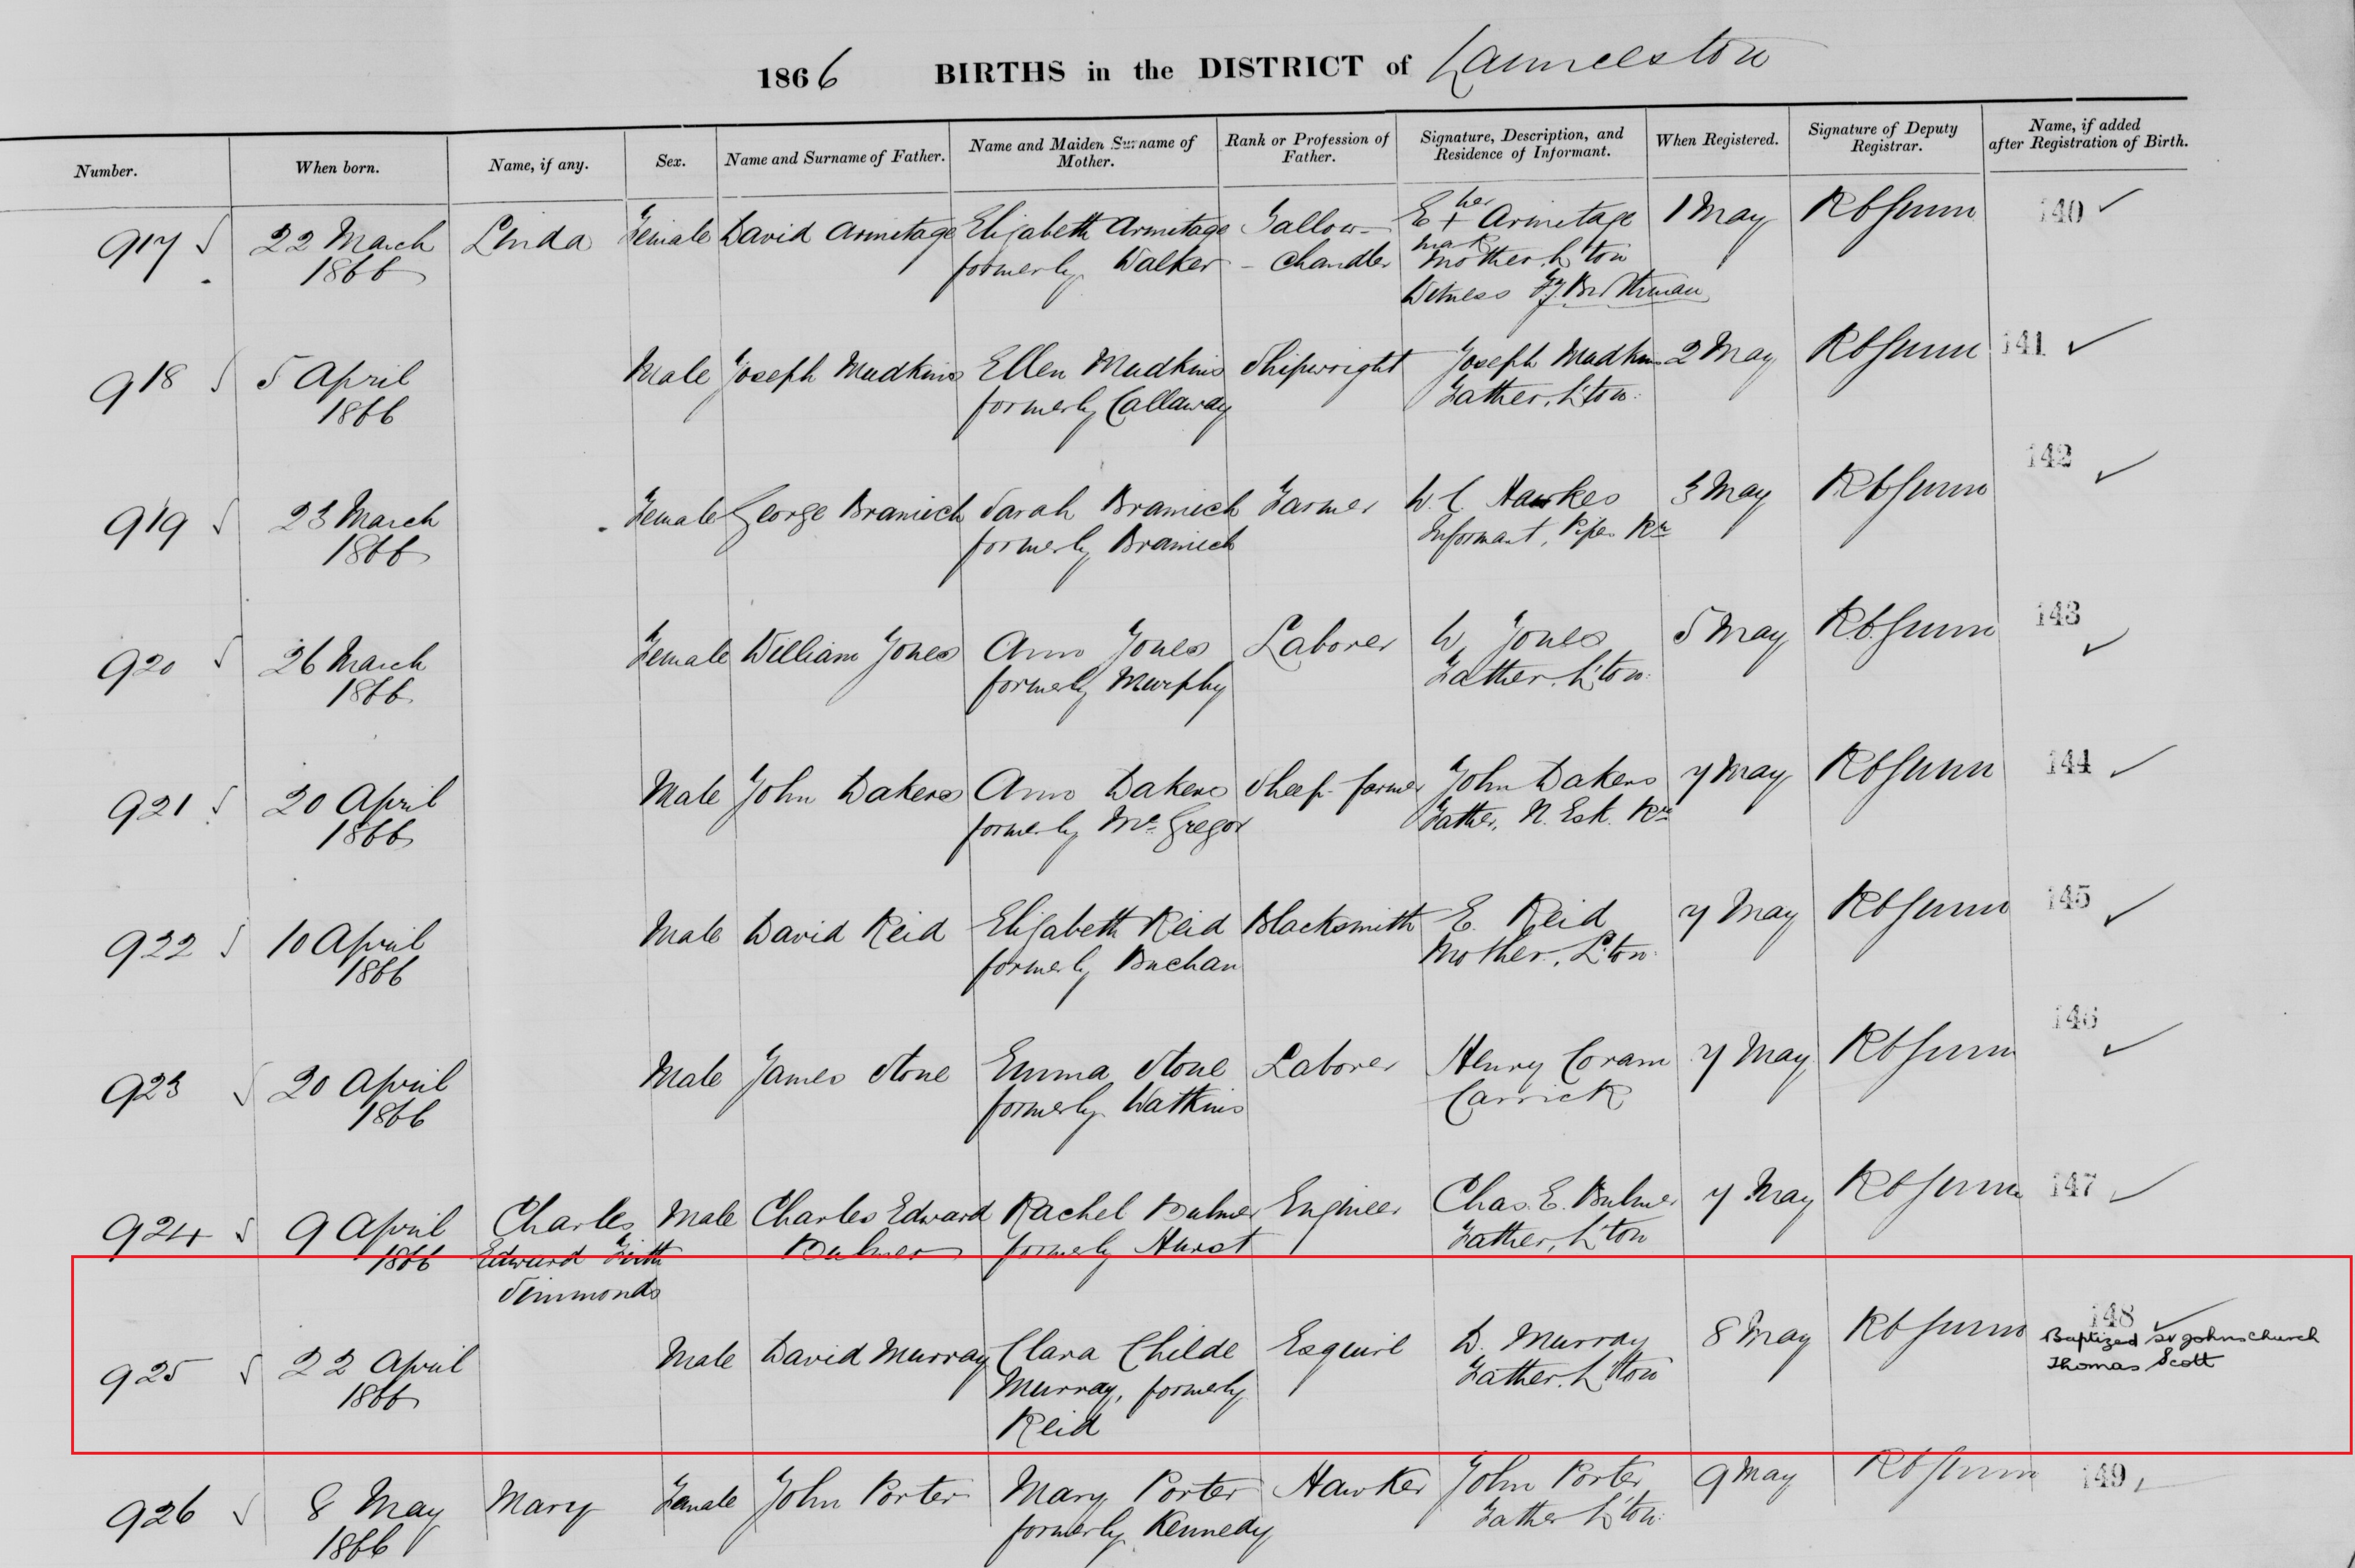 1866 BIRTHS in the DISTRICT of Launceston
Number. When born. Name, if any. Sex. Name and Surname of Father. Name and Maiden Surname of Mother. Rank or Profession of Father. Signature, Description, and Residence of Informant. When Registered. Signature of Deputy Registrar. Name, if added after Registration of Birth.
917 22 March Linda Female David Armitage Elizabeth Armitage Tallow- E + Armitage 1 May 140
her
mark
1866 formerly Walker - Chandler Mother. L'ton
Witness
918 5 April Male Joseph Mudkins Ellen Mudkins Shipwright Joseph Mudkins 2 May 141
1866 formerly Callaway Father. L'ton
919 23 March Female George Bramich Sarah Bramich Farmer W. C. Hawkes 3 May 142
1866 formerly Bramich Informant, Piper Rr
920 26 March Female William Jones Ann Jones Laborer W. Jones 5 May 143
1866 formerly Murphy Father. L'ton
921 20 April Male John Dakers Ann Dakers Sheep-farmer John Dakers 7 May 144
1866 formerly McGregor Father, N. Esk. Rr
922 10 April Male David Reid Elizabeth Reid Blacksmith E. Reid 7 May 145
1866 formerly Buchan Mother. L'ton
923 20 April Male James Stone Emma Stone Laborer Henry Coram 7 May 146
1866 formerly Watkins Carrick
924 9 April Charles Male Charles Edward Rachel Bulmer Engineer Chas. E. Bulmer 7 May 147
1866 Edward Firth Bulmer formerly Hurst Father, L'ton
Simmonds
925 22 April Male David Murray Clara Childe Esquire D. Murray 8 May 148
Baptized St Johns Church
1866 Murray, formerly Father. L'ton Thomas Scott
Reid
926 8 May Mary Female John Porter Mary Porter Hawker John Porter 9 May 149
1866 formerly Kennedy Father L'ton